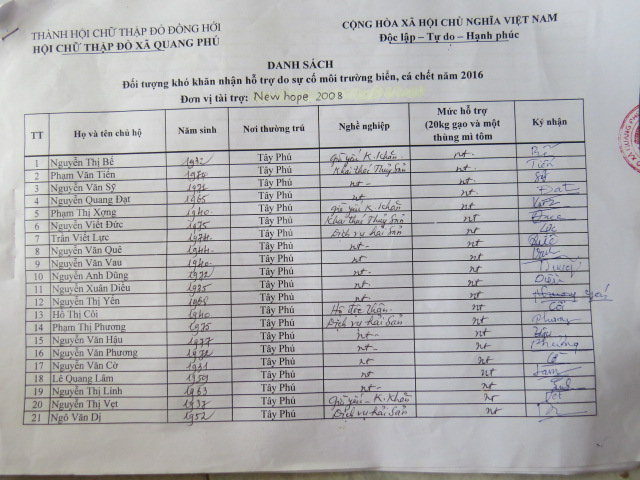 THÀNH HỘI CHỮ THẬP ĐỎ ĐỒNG HỚI
HỘI CHỮ THẬP ĐỎ XÃ QUANG PHÚ
CỘNG HÒA XÃ HỘI CHỦ NGHĨA VIỆT NAM
Độc lập – Tự do – Hạnh phúc
DANH SÁCH
Đối tượng khó khăn nhận hỗ trợ do sự cố môi trường biển, cá chết năm 2016
Đơn vị tài trợ: New hope 2008
TT Họ và tên chủ hộ Năm sinh Nơi thường trú Nghề nghiệp Mức hỗ trợ (20kg gạo và một thùng mì tôm) Ký nhận
1 Nguyễn Thị Bế 1932 Tây Phú Già yếu K. Khăn nt
2 Phạm Văn Tiến Tây Phú Khai thác Thủy Sản nt Tiến
3 Nguyễn Văn Sỹ 1971 Tây Phú nt - nt Sỹ
4 Nguyễn Quang Đạt 1965 Tây Phú nt - nt Đat
5 Phạm Thị Xợng 1940 Tây Phú Già yếu K. Khăn nt
6 Nguyễn Viết Đức 1975 Tây Phú Khai thác Thủy Sản nt Đức
7 Trần Viết Lực 1974 Tây Phú Dịch vụ hải Sản nt Lực
8 Nguyễn Văn Quê 1944 Tây Phú nt - nt
9 Nguyễn Văn Vau 1940 Tây Phú nt - nt
10 Nguyễn Anh Dũng 1972 Tây Phú nt - nt
11 Nguyễn Xuân Diêu 1935 Tây Phú nt - nt Diêu
12 Nguyễn Thị Yến 1968 Tây Phú nt - nt
13 Hồ Thị Còi 1940 Tây Phú Hộ độc thân nt Còi
14 Phạm Thị Phương 1975 Tây Phú Dịch vụ hải Sản nt Phương
15 Nguyễn Văn Hậu 1977 Tây Phú nt - nt Hậu
16 Nguyễn Văn Phương 1972 Tây Phú nt - nt Phương
17 Nguyễn Văn Cờ 1931 Tây Phú nt - nt Cờ
18 Lê Quang Lâm 1959 Tây Phú nt - nt Lam
19 Nguyễn Thị Linh 1963 Tây Phú nt - nt Linh
20 Nguyễn Thị Vẹt 1937 Tây Phú Già yếu - K. Khăn nt Vet
21 Ngô Văn Dị 1952 Tây Phú Dịch vụ hải Sản nt